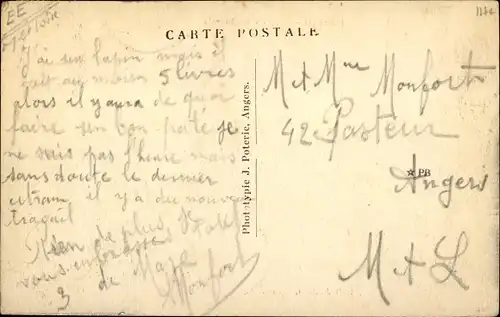 EE
CARTE POSTALE
J'ai un lapin mais il
fait au moins 5 livres
alors il y aura de quoi
faire un bon paté je
ne sais pas l'heure mais
sans doute le dernier
tram il y a du nouveau
travail
Rien de plus
vous embrasse
de
Monfort
Phototypie J. Poterie, Angers.
M & Mme Monfort
42 Pasteur
★ PB
Angers
M & L